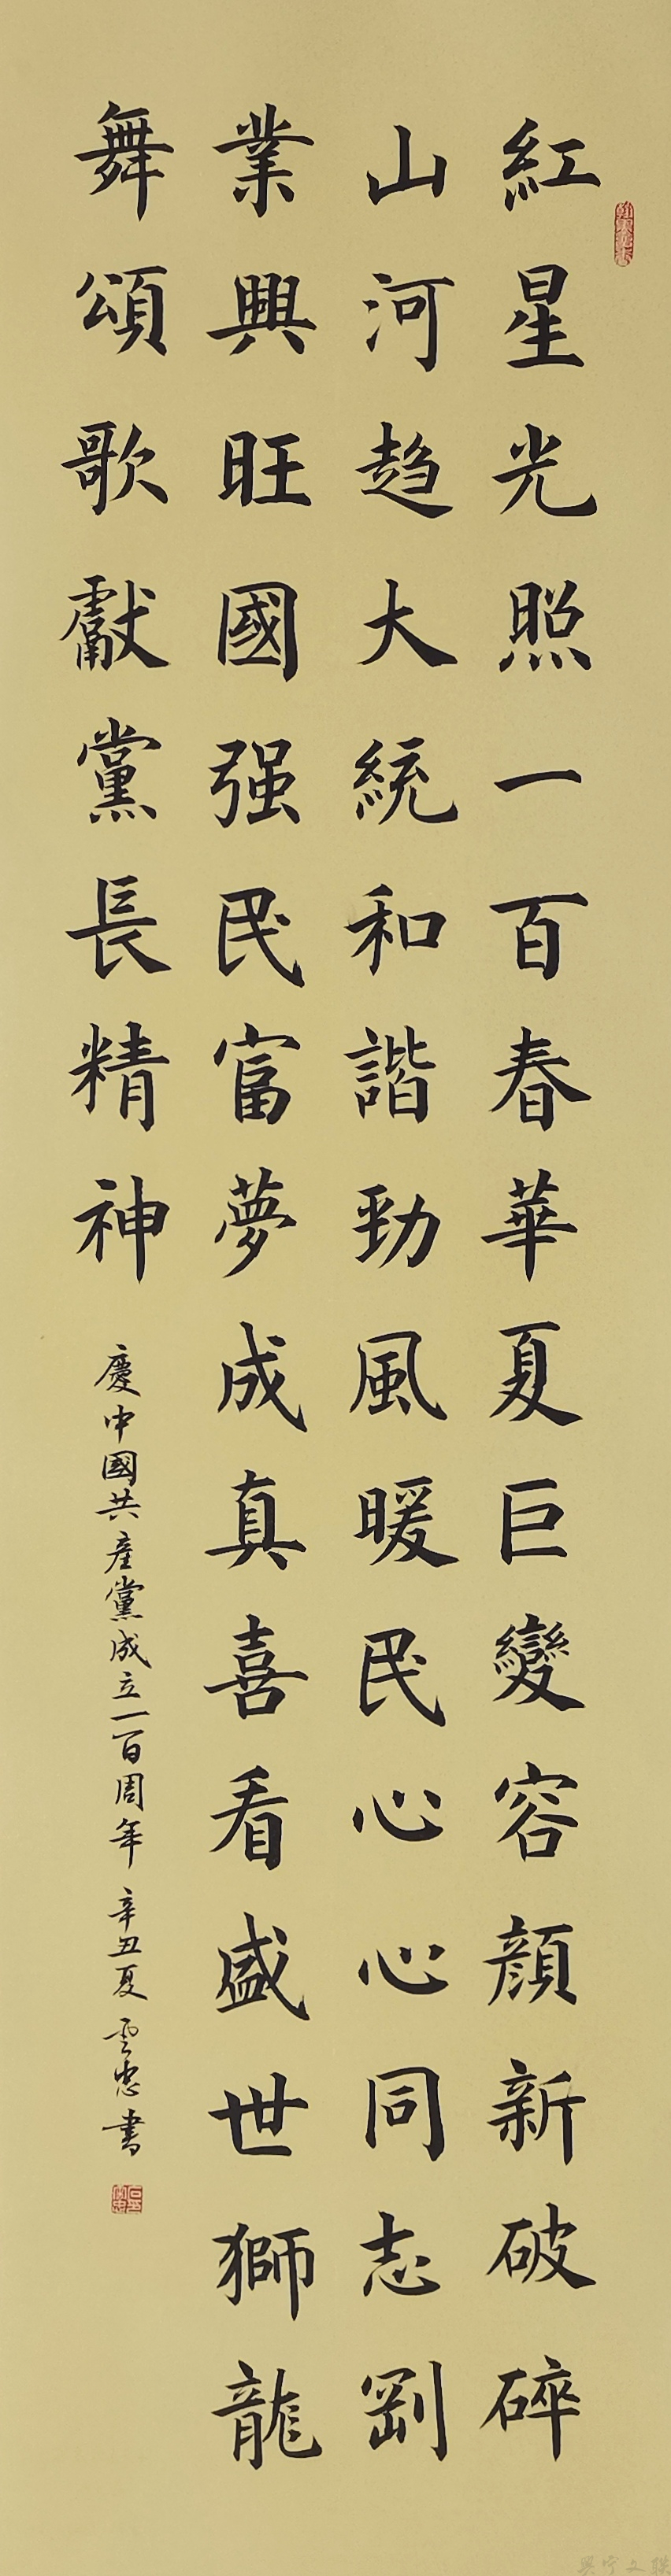 紅星光照一百春華夏巨變容顔新破碎
山河趋大統和諧勁風暖民心心同志劉
業興旺國强民富夢成真喜看盛世獅龍
舞頌歌獻黨長精神
慶中國共產黨成立一百周年 辛丑夏 雲忠書